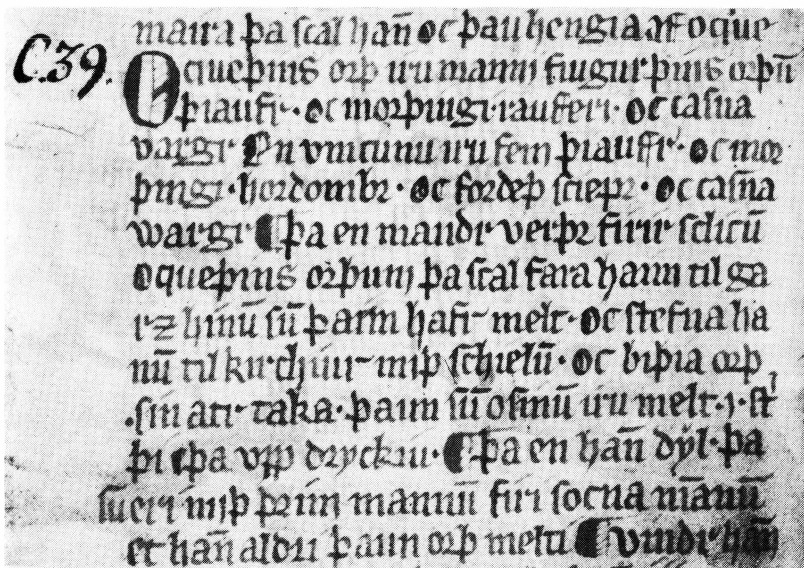 maira þa scal han̄ oc þau hengia af oque
C.39. Oqueþins orþ iru manni fiugur þins orþū
þiaufr· oc morþingi· raufeti· oc casna
vargr· En vm cunu iru fem þiaufr· oc mor
þingi· hordombr· oc fordeþ sciepr· oc casna
wargr· þa en mandr verþr firir sclicū
oqueþins orþum þa scal fara hann til ga
rz hinū sū þaim hafr melt· oc stefna ha
nū til kirchiur miþ schielū· oc biþia orþ
sin atr taka· þaim sū osinū iru melt· i· st
þi eþa vpp dryckiu· þa en han̄ dyl· þa
sueri miþ þrim mannū firi socna mānū
et han̄ aldri þaun orþ melti vindr han̄